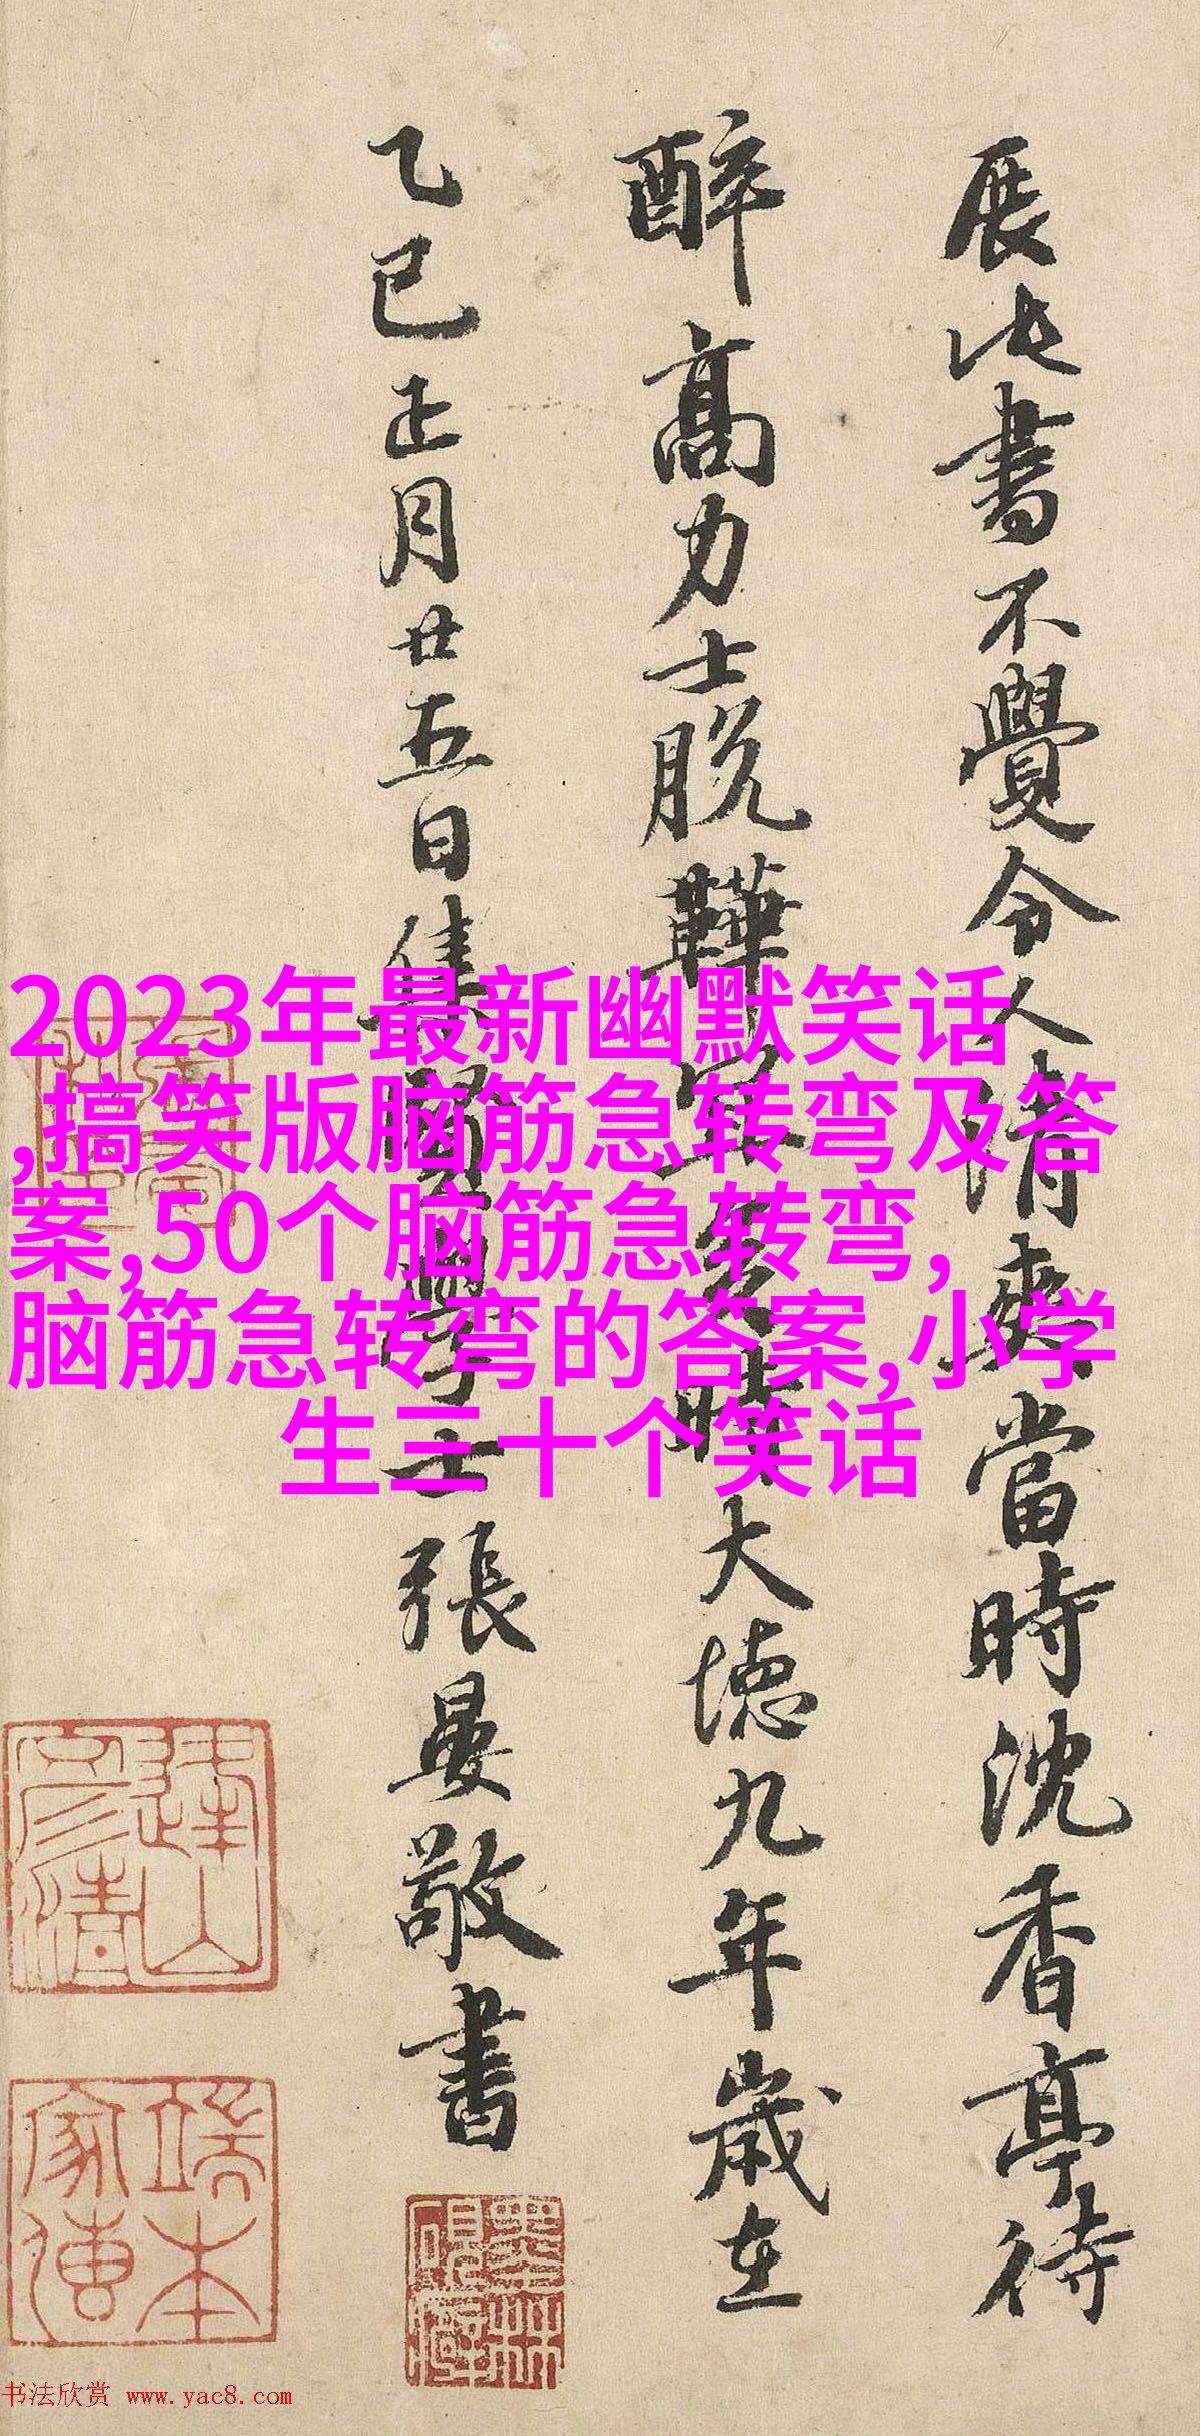 展此書不覺令人清爽當時沈香亭待
醉高力士脱鞾宜矣時大德九年歲在
乙巳正月廿五日集賢學士張晏敬書
2023年最新幽默笑话
,搞笑版脑筋急转弯及答
案,50个脑筋急转弯,
脑筋急转弯的答案,小学
生三十个笑话
书法欣赏 www.yac8.com